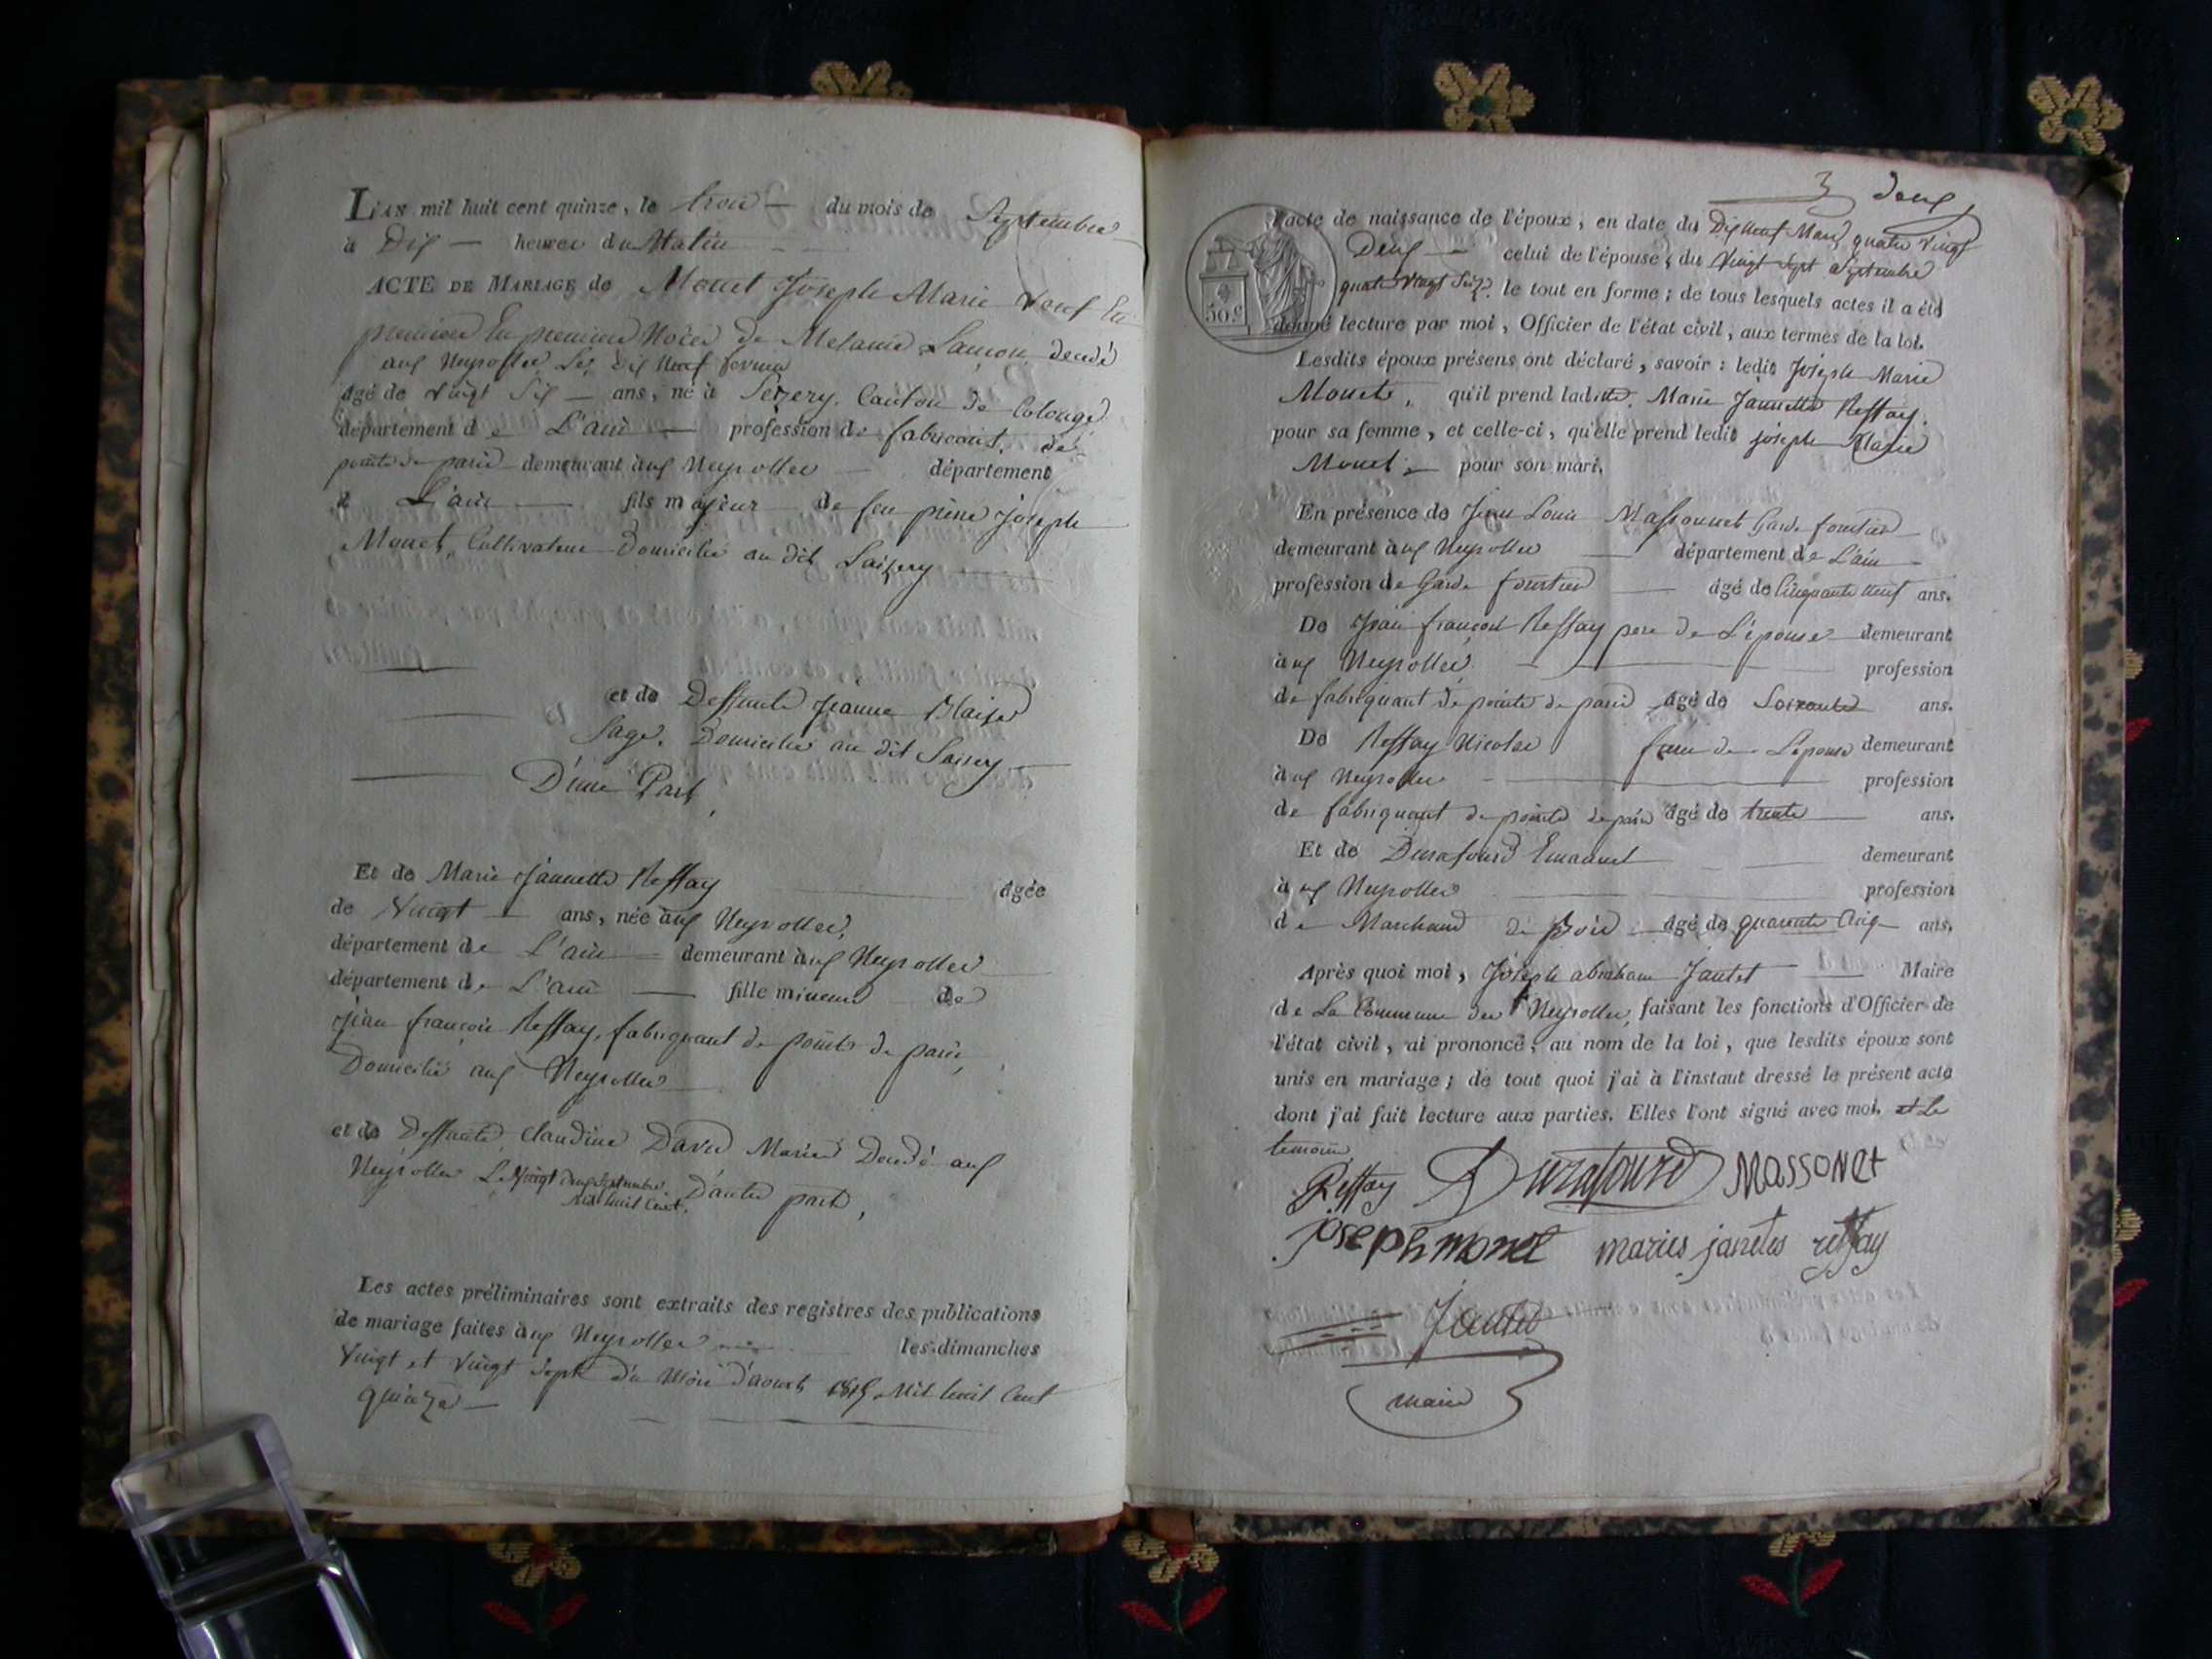 L'AN mil huit cent quinze, le trois du mois de Septembre
à Dix heures du Matin
ACTE DE MARIAGE de Monet Joseph Marie Veuf En
premiere En premiere Noces de Melanie dendé
aux Neyrolles Le Dix Neuf
âgé de vingt Six ans, né à Lezery. Canton de Colonge
département de L'ain profession de fabricant. de
pointe de paris demeurant aux Neyrolles département
d L'ain fils majeur de feu pierre joseph
Monet, Cultivateur Domicilié au dit Laizery
et de Deffunte Jeanne Blaise
Sage. Domicilié au dit
D'une Part,
Et de Marie Jannette Reffay âgée
de Vingt ans, née aux Neyrolles,
département de L'ain demeurant aux Neyrolles
département de L'ain fille mineure de
jean françois Reffay, fabriquant de pointe de paris,
Domicilié aux Neyrolles
et de Deffunte Claudine David Mariée Dendé aux
Neyrolles Le Vingt Deux Septembre D'autre part,
Mil huit Cent.
Les actes préliminaires sont extraits des registres des publications
de mariage faites aux Neyrolles les dimanches
Vingt et Vingt Sept du Mois d'aoust 1815. Mil huit Cent
quinze
3 deux
50 c
l'acte de naissance de l'époux, en date du Dix Neuf Mars quatre vingt
Deux celui de l'épouse, du Vingt Sept Septembre
quatre Vingt Seize. le tout en forme; de tous lesquels actes il a été
donné lecture par moi, Officier de l'état civil, aux termes de la loi.
Lesdits époux présens ont déclaré, savoir: ledit Joseph Marie
Monet, qu'il prend ladite Marie Jannette Reffay.
pour sa femme, et celle-ci, qu'elle prend ledit joseph Marie
Monet pour son mari.
En présence de Jean Louis Massonnet Garde forestier
demeurant aux Neyrolles département de L'ain
profession de Garde forestier âgé de Cinquante Neuf ans.
De Jean françois Reffay pere de L'épouse demeurant
aux Neyrolles profession
de fabriquant de pointe de paris âgé de Soixante ans.
De Reffay Nicolas frere de L'épouse demeurant
aux Neyrolles profession
de fabriquant de pointe de paris âgé de trente ans.
Et de Durafourd Emanuel demeurant
à ux Neyrolles profession
de Marchand de Bois âgé de quarante Cinq ans.
Après quoi moi, Joseph abraham Jantet Maire
de La Commune des Neyrolles, faisant les fonctions d'Officier de
l'état civil, ai prononcé, au nom de la loi, que lesdits époux sont
unis en mariage; de tout quoi j'ai à l'instant dressé le présent acte
dont j'ai fait lecture aux parties. Elles l'ont signé avec moi. et Le
temoins
Reffay Durafourd MASSONet
joseph monet maries janetes reffay
Jantet
maire